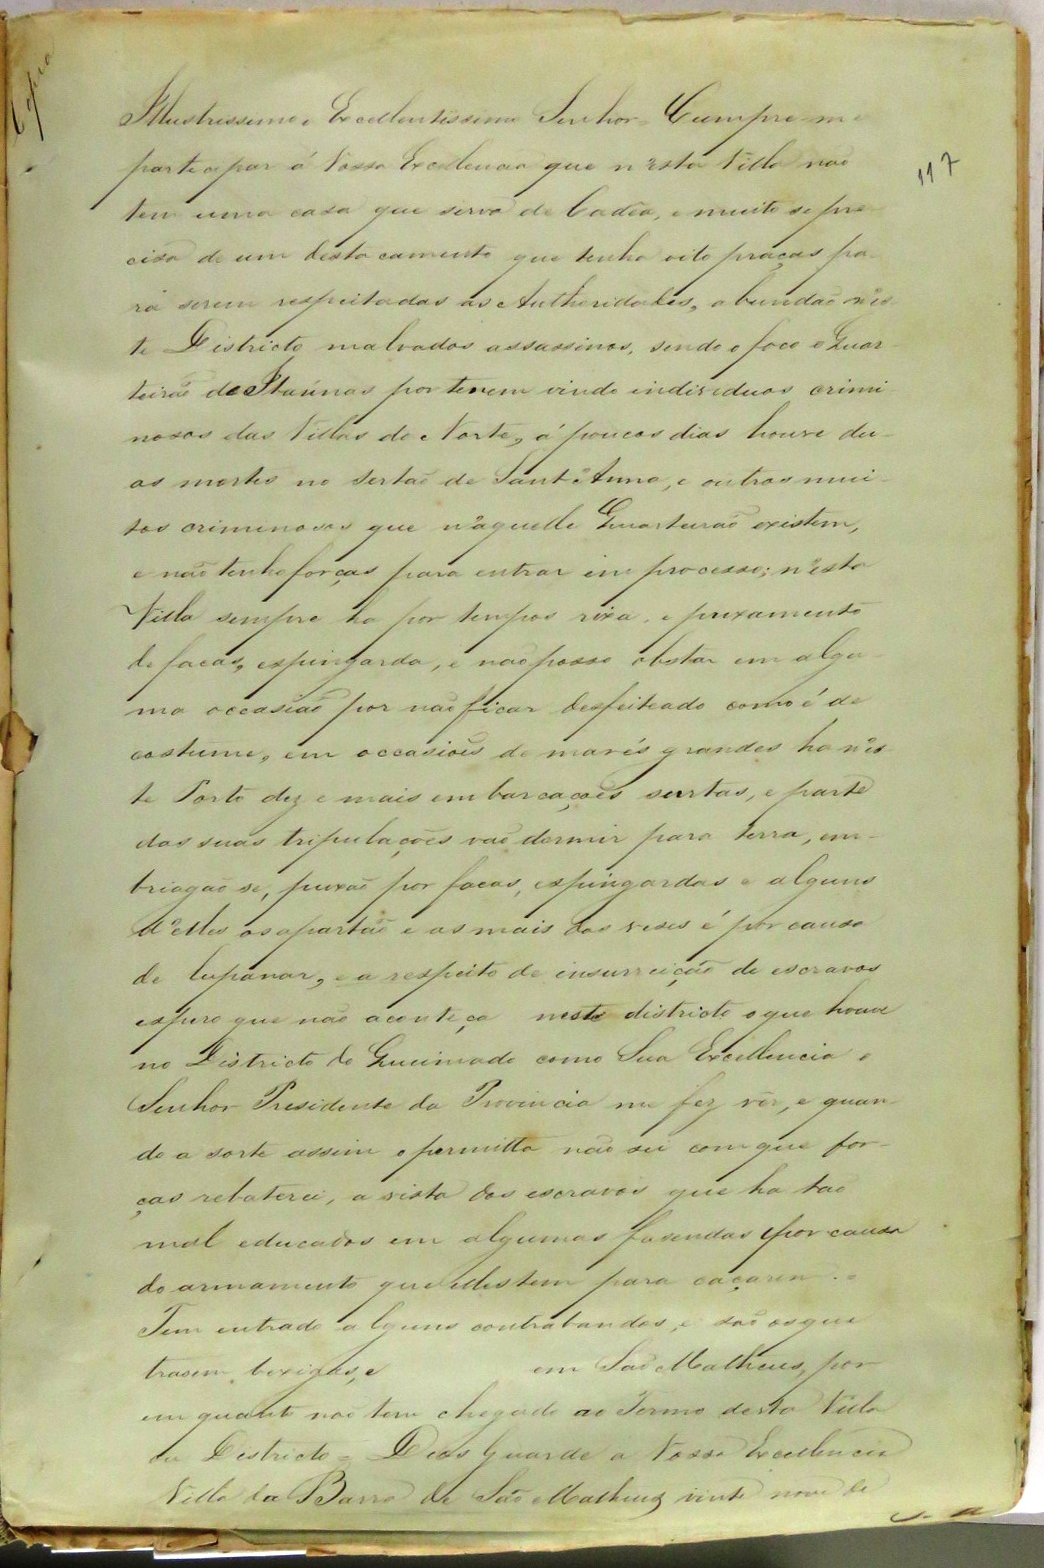 Copia
Illustrissimo e Excellentissimo Senhor = Cumpre-me
participar á Vossa Excellencia que n'esta Villa não
tem uma casa que serva de Cadêa, e muito se pre-
cisa de um destacamento que tenha oito praças pa-
ra serem respeitadas as Authoridades, abundão n'es-
te Districto malvados assassinos, sendo o foco o Quar-
teirão de Itaúnas por terem vindo individuos crimi
nosos das Villas do Norte, á poucos dias houve du-
as mortes no sertão de Sant'Anna, e outros mui-
tos criminosos que n'aquelle Quarteirão existem,
e não tenho forças para entrar em processo; n'esta
Villa sempre ha por tempos rixa, e puxamento
de facas, espingarda, e não posso obstar em algu-
ma occasião por não ficar desfeiteado como é de
costume, em occasiões de marés grandes ha n'es-
te Porto dez e mais embarcações surtas, e parte
das suas tripulações vão dormir para terra, em-
briagão se, puxão por facas, espingardas e alguns
d'elles os apartão e as mais das veses é por causa
de lupanar, e a respeito de insurreição de escravos
espero que não aconteça neste districto o que houve
no Districto do Queimado como Sua Excellencia o
Senhor Presidente da Provincia me fez vêr, e quan-
do a sorte assim o permitta não sei com que for-
ças rebaterei, a vista dos escravos que ha tão
mal educados em algumas fasendas e por causa
do armamento que elles tem para caçarem.
Tem entrado alguns contrabandos, e são os que
trasem bexigas, e em São Matheus, por
em quanto não tem chegado ao Termo desta Villa
du Districto = Deos Guarde a Vossa Excellencia
Villa da Barra de São Matheus vinte nove de
117